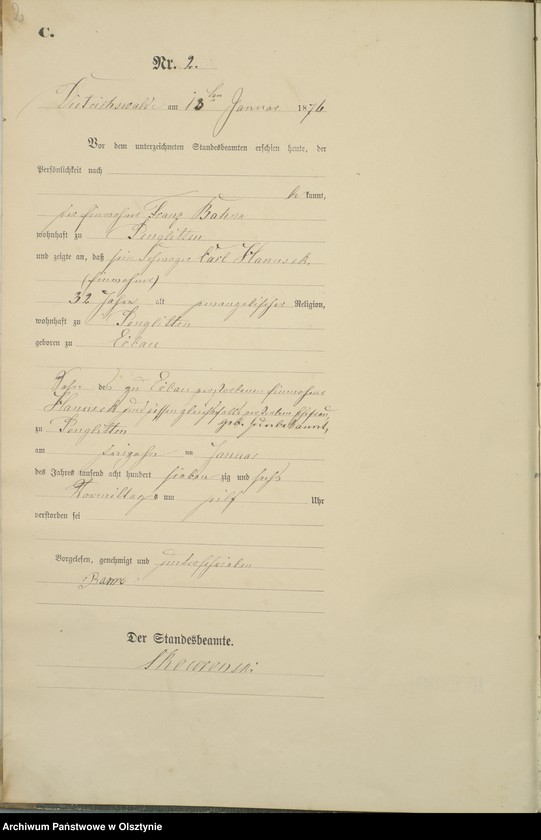 C.
Nr. 2.
Dietrichswalde am 13ten Januar 1876
Vor dem unterzeichneten Standesbeamten erschien heute, der
Persönlichkeit nach
be kannt,
der Einwohner Franz
wohnhaft zu Penglitten
und zeigte an, daß sein Schwager Carl Hannsek
(Einwohner)
32 Jahre alt evangelischer Religion,
wohnhaft zu Penglitten
geboren zu Erbau
Sohn des zu Erbau verstorbenen Einwohners
Hannsek und dessen gleichfalls Ehefrau
geb. (unbekannt)
zu Penglitten
am ten Januar
des Jahres tausend acht hundert sieben zig und sechs
Vormittags um elf Uhr
verstorben sei
Vorgelesen, genehmigt und unterschrieben
Der Standesbeamte.
Archiwum Państwowe w Olsztynie